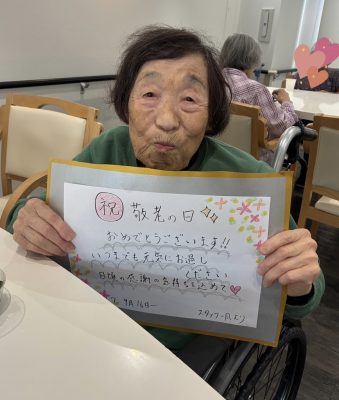 祝 敬老の日
おめでとうございます!!
いつまでも元気にお過し
ください
日頃の感謝の気持を込めて
9月16日
スタッフ一同より